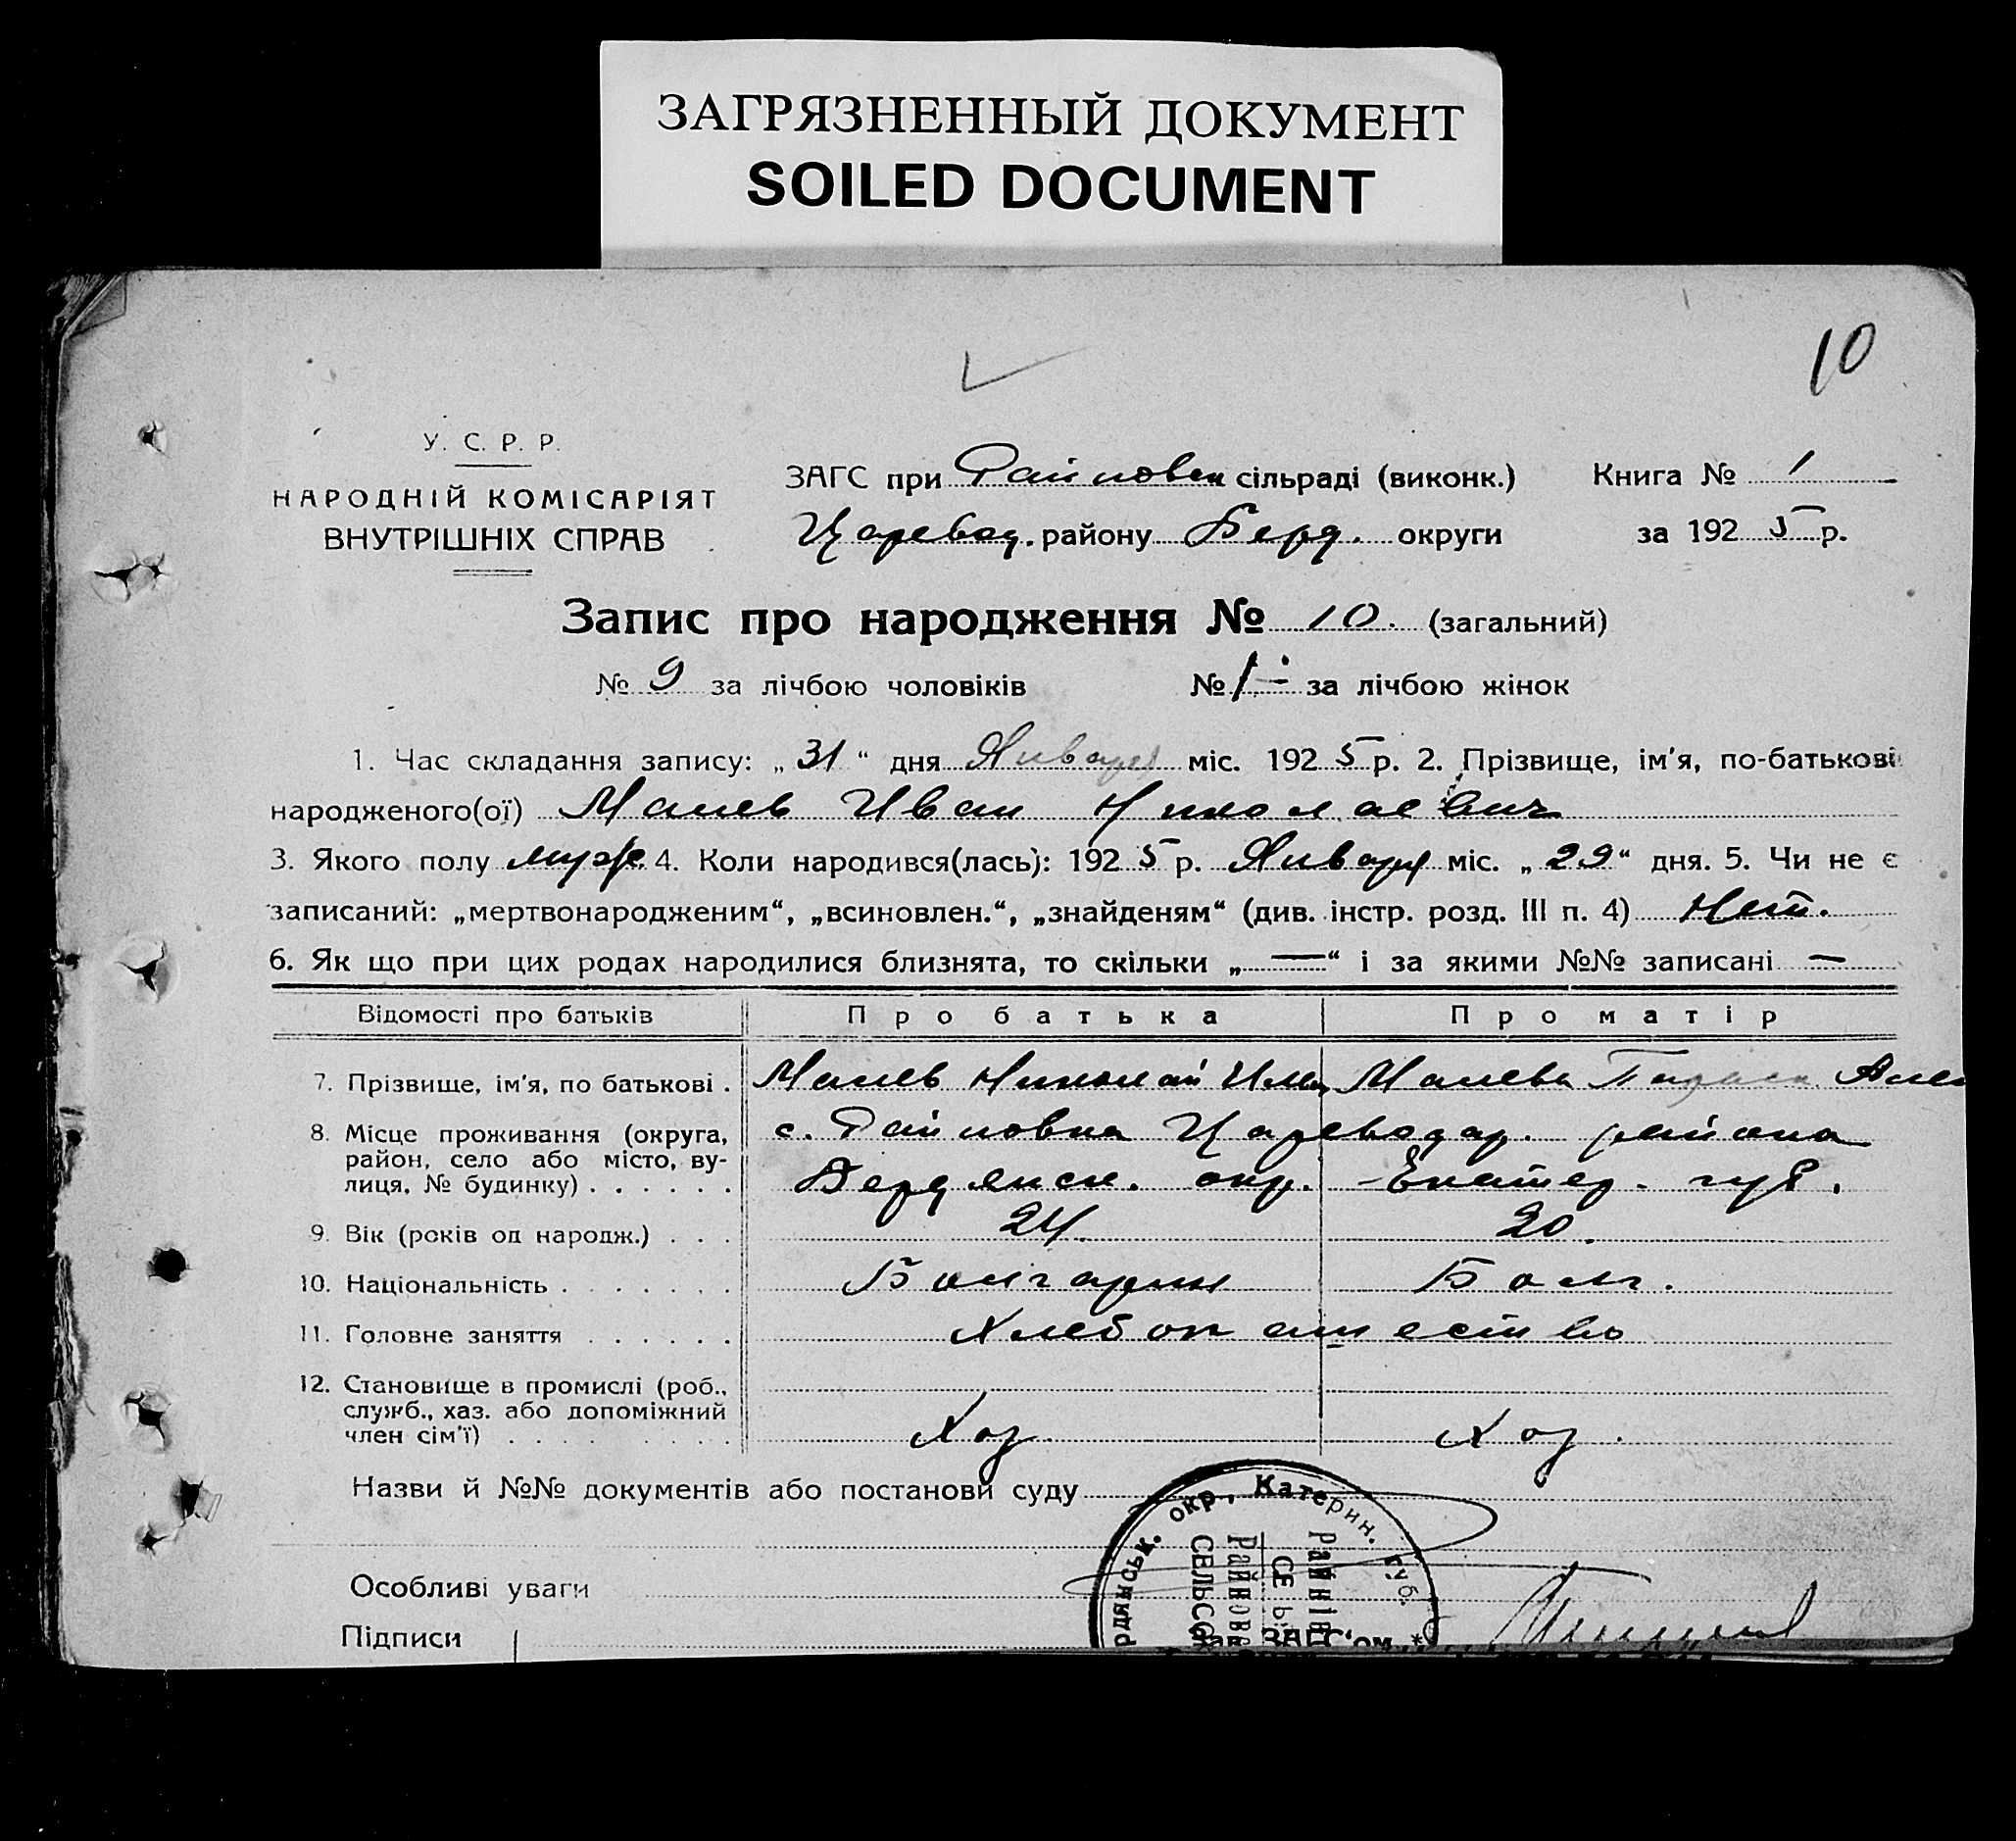 ЗАГРЯЗНЕННЫЙ ДОКУМЕНТ
SOILED DOCUMENT
10
У. С. Р. Р.
НАРОДНІЙ КОМІСАРІЯТ
ВНУТРІШНІХ СПРАВ
ЗАГС при Райновск сільраді (виконк.) Книга № 1
Царевод. району Берд. округи за 1925 р.
Запис про народження № 10. (загальний)
№ 9 за лічбою чоловіків № 1 за лічбою жінок
1. Час складання запису: „31“ дня Января міс. 1925 р. 2. Прізвище, ім'я, по-батькові
народженого(ої) Малев Иван Николаевич
3. Якого полу муж. 4. Коли народився(лась): 1925 р. Января міс. „29“ дня. 5. Чи не є
записаний: „мертвонародженим“, „всиновлен.“, „знайденям“ (див. інстр. розд. III п. 4) Нет.
6. Як що при цих родах народилися близнята, то скільки „—“ і за якими №№ записані —
Відомості про батьків Про батька Про матір
7. Прізвище, ім'я, по батькові . Малев Николай Малева
8. Місце проживання (округа, с. Райновка Цареводар. района
район, село або місто, ву-
лиця, № будинку) . . . . . . Бердянск. окр. Екатер. губ.
9. Вік (років од народж.) . . . 24. 20.
10. Національність . . . . . . . Болгарин Болг.
11. Головне заняття . . . . . . Хлебопашество
12. Становище в промислі (роб.,
служб., хаз. або допоміжний
член сім'ї) . . . . . . . . . Хоз. Хоз.
Назви й №№ документів або постанови суду
Особливі уваги
Підписи
Зав. ЗАГС'ом
рдянськ. окр., Катерин. губ.